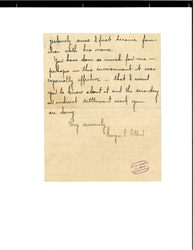 since I first became fami-
liar with his name.
You have done so much for me —
perhaps in this environment it was
especially effective — that I want
you to know about it and the
settlement work you
are doing.
Very sincerely,